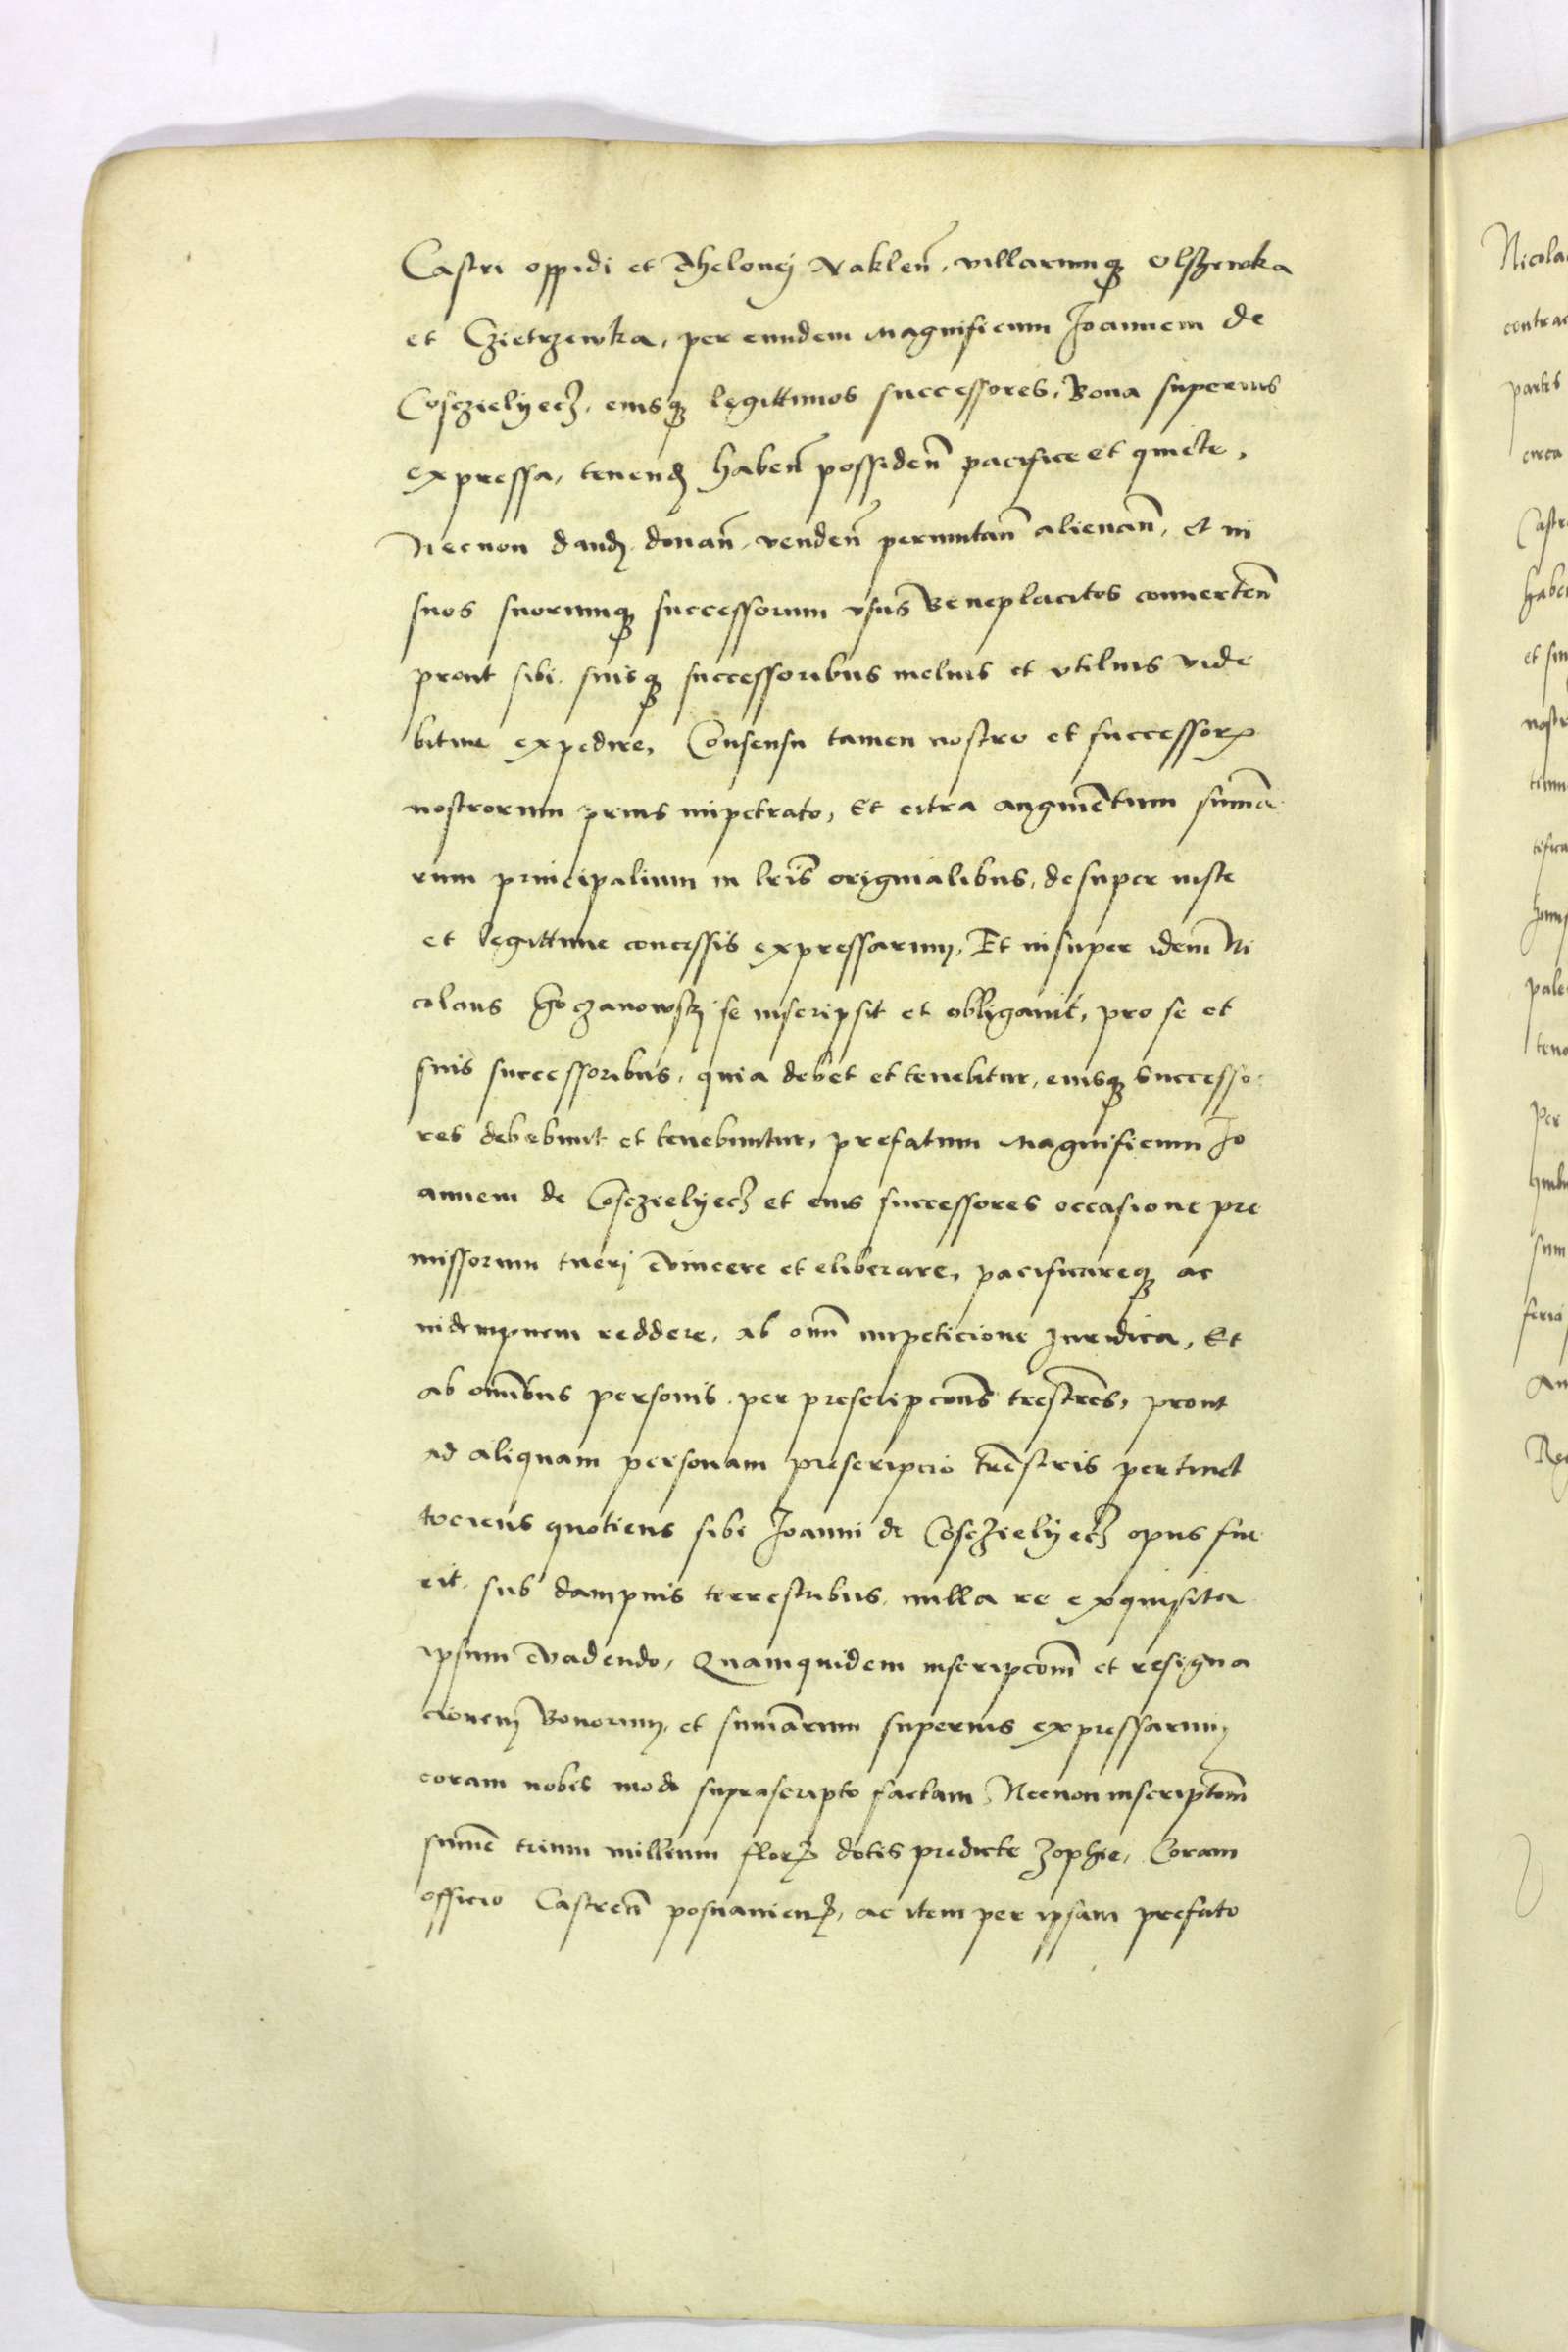 Castri oppidi et Theloney Naklen̄, villarumq̨ Olszewka
et Czietrzewka, per eundem Magnificum Joannem de
Cosczielyecz, eiusq̨ legittimos successores, Bona superius
expressa, tenend̨ haben̄ possiden̄ pacifice et quiete,
Necnon dand̨ donan̄, venden̄ permutan̄ alienan̄, et in
suos suorumq̨ successorum vsus Beneplacitos conuerten̄
prout sibi suisq̨ successoribus melius et vtilius vide
bitur expedire, Consensu tamen nostro et successorꝝ
nostrorum prius impetrato, Et citra augmētum sum̄a
rum principalium in lrīs originalibus, desuper iuste
et legittime concessis expressarum, Et insuper idem Ni
colaus se inscripsit et obligauit, pro se et
suis successoribus, quia debet et tenebitur, eiusq̨ successo
res debebunt et tenebuntur, prefatum Magnificum Jo
annem de Cosczielyecz et eius successores occasione pre
missorum tuerj euincere et eliberare, pacificareq̨ ac
indempnem reddere, ab omn̄ impeticione Juridica, Et
ab omībus personis per prescripcōnes trestres, prout
ad aliquam personam prescripcio trēstris pertinet
tociens quotiens sibi Joanni de Cosczielyecz opus fue
rit, sub dampnis terrestribus, nulla re exquisita
ipsum euadendo, Quamquidem inscripcōnem et resigna
cionem Bonorum, et sum̄arum superius expressarum
coram nobis modo suprascripto factam, Necnon inscriptōnem
sum̄e trium millium florꝝ dotis predicte Zophie, Coram
officio Castren̄ posnanien̄, ac item per ipsam prefato
Nicola
contrac
partes
circa
Castr
habe
et sin
nostr
pale
teno
Per
sum
feria